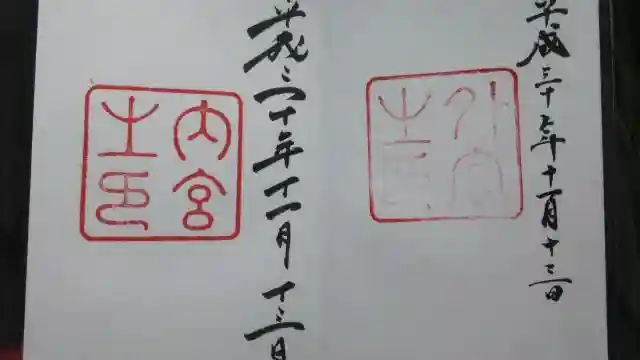 平成三十年十一月十三日
外宮
之印
平成三十年十一月十三日
内宮
之印